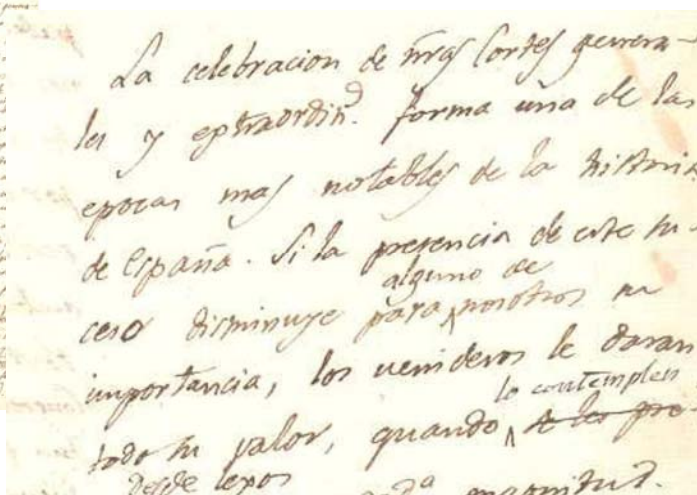 La celebracion de nrãs Cortes genera-
les y extraordin.s forma una de las
epocas mas notables de la historia
de España. Si la presencia de este su-
alguno de
ceso disminuye para ^ nosotros su
importancia, los venideros le daran
lo contemplen
todo su valor, quando ^ se les pre
desde lexos
magnitud.